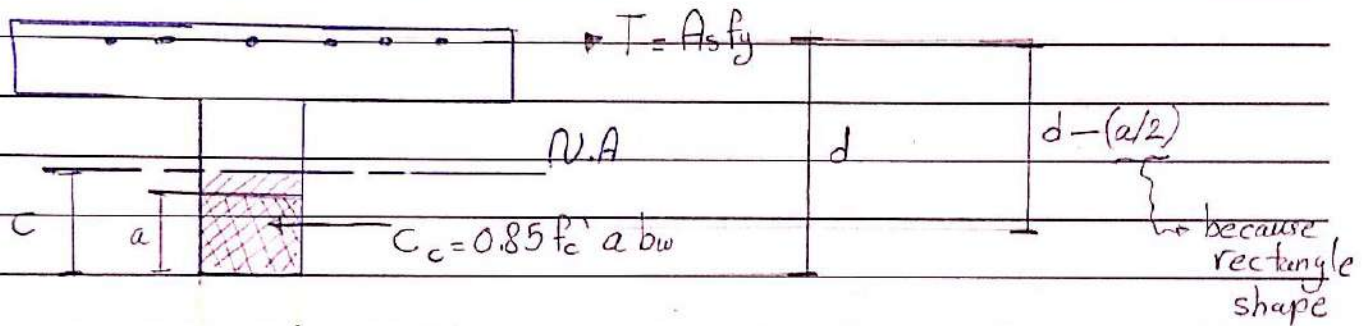 T = As fy
N.A
d
d-(a/2)
C
a
Cc = 0.85 fc' a bw
because
rectangle
shape